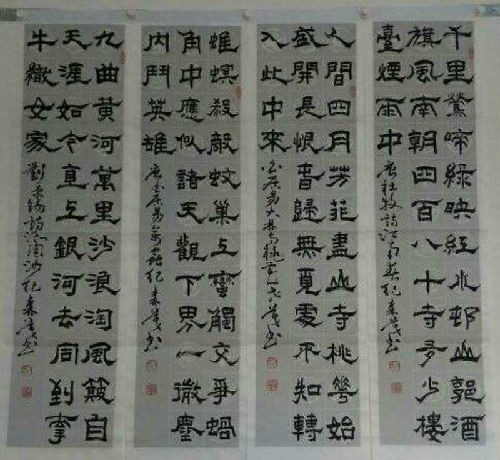 千里鶯啼綠映紅水邨山郭酒
旗風南朝四百八十寺多少樓
臺煙雨中 唐杜牧詩江南春
人間四月芳菲盡山寺桃花始
盛開長恨春歸無覓處不知轉
入此中來
蟭螟殺敵蚊巢上蠻觸交爭蝸
角中應似諸天觀下界一微塵
內鬥英雄
九曲黃河萬里沙浪淘風簸自
天涯如今直上銀河去同到牽
牛織女家 劉禹錫詩浪淘沙